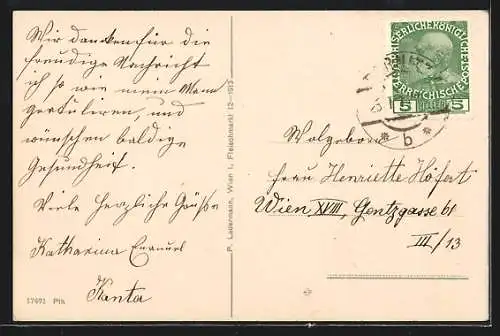 Wir danken für die
freudige Nachricht
ich so wie mein Mann
gratulieren, und
wünschen baldige
Gesundheit.
Viele herzliche Grüße
Katharina Emanuel
Kanta
17693 Ptk
P. Ledermann, Wien I., Fleischmarkt 12-1913
KAISERLICHE KÖNIGLICHE
ÖSTERREICHISCHE POST
5 HELLER 5
* b *
Wolgeboren
Frau Henriette Hofert
Wien, XVIII, Gentzgasse 61
III/13